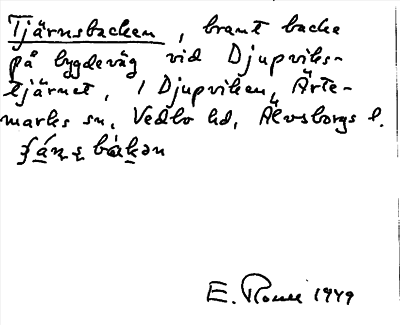 Tjärnsbacken, brant backe
på bygdeväg vid Djupviks-
tjärnet, i Djupviken, Ärte-
marks sn. Vedbo hd, Älvsborgs l.
E. 1949